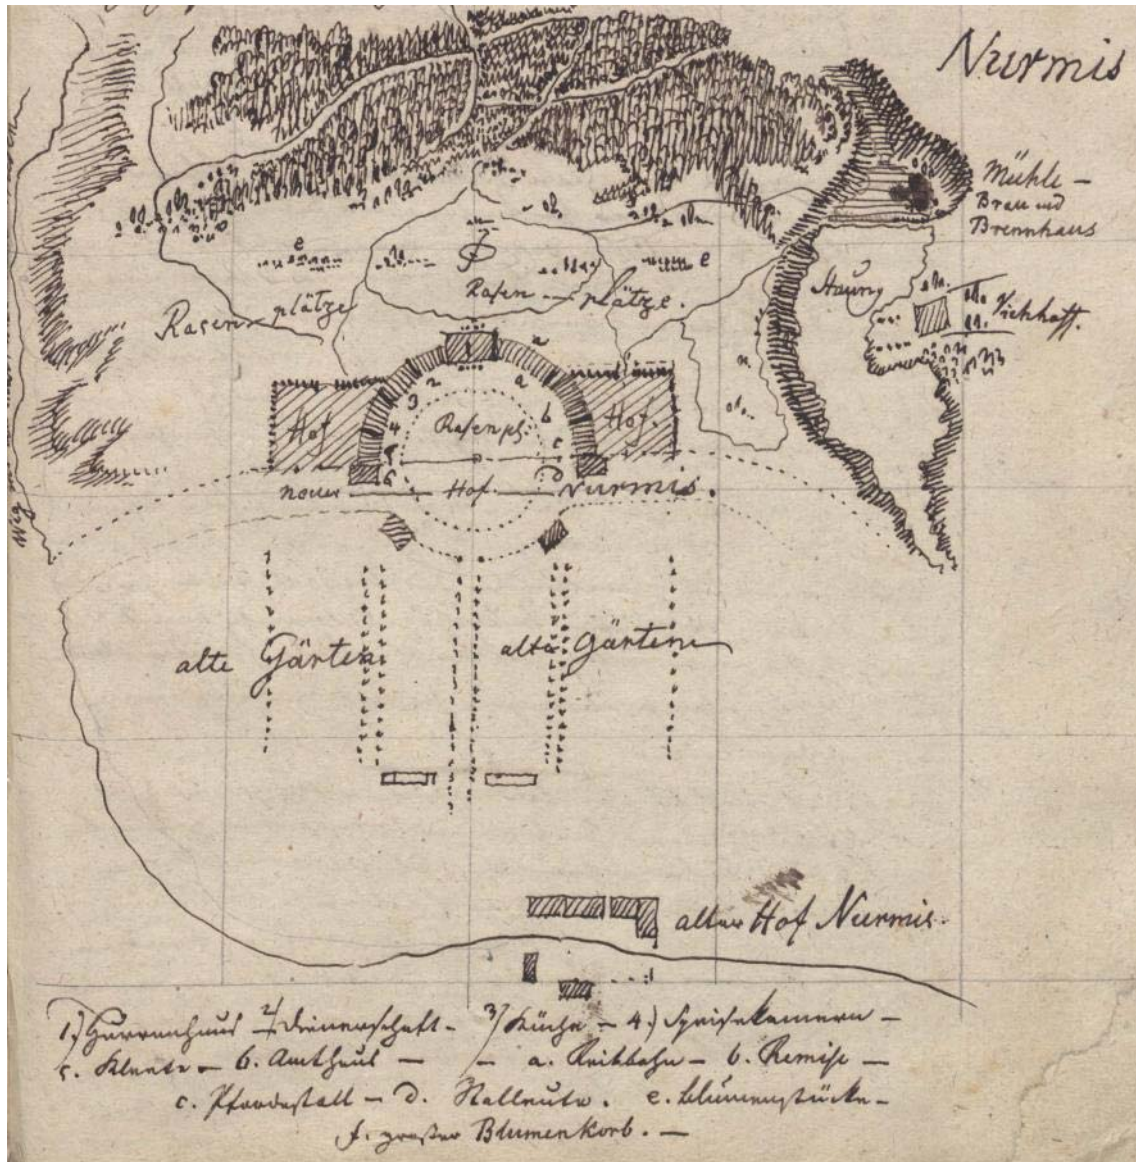 Nurmis
Mühle –
Brau und
Brennhaus
e
f
e
Rasen – plätze.
Rasen plätze
Stauung
Viehhoff.
1
a
2
a
3
b
4
c
5
d
6
Hof
Rasenpl.
Hof.
neuer — Hof. — Nurmis.
Weg
alte Gärten
alte Gärten
alter Hof Nurmis.
1.) Herrenhaus 2/ Dienerschaft – 3/ Küche – 4.) Speisekamern –
5. Kleete – 6. Amthaus — – a. Reitbahn – b. Remise —
c. Pferdestall – d. Stalleute. e. Blumenstücke –
f. großer Blumenkorb. —